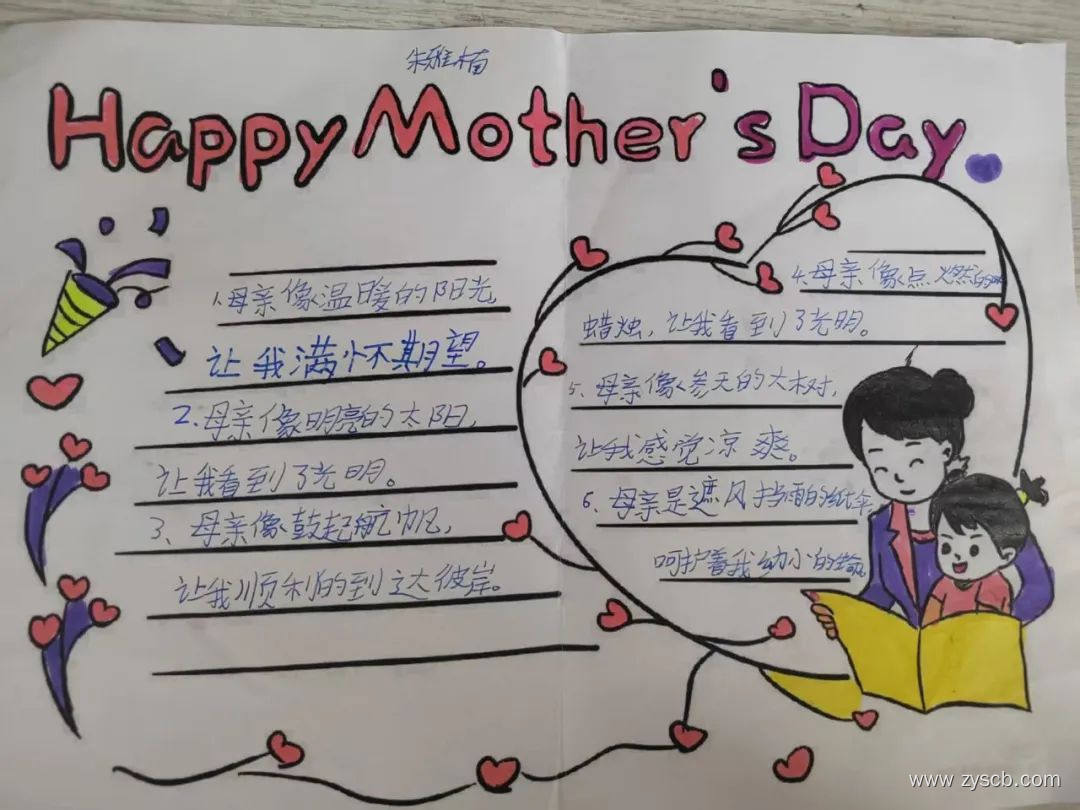 朱雅楠
Happy Mother's Day
1.母亲像温暖的阳光
让我满怀期望。
2.母亲像明亮的太阳,
让我看到了光明。
3、母亲像鼓起航帆,
让我顺利的到达彼岸。
4.母亲像点燃的
蜡烛,让我看到了光明。
5.母亲像参天的大树,
让我感觉凉爽。
6.母亲是遮风挡雨的纸伞,
呵护着我幼小的
www.zyscb.com